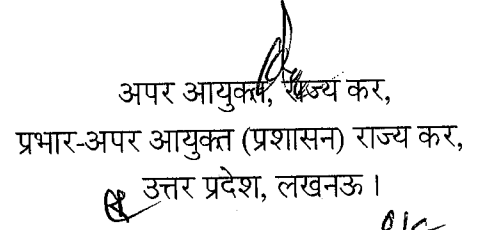 अपर आयुक्त, राज्य कर,
प्रभार-अपर आयुक्त (प्रशासन) राज्य कर,
उत्तर प्रदेश, लखनऊ।